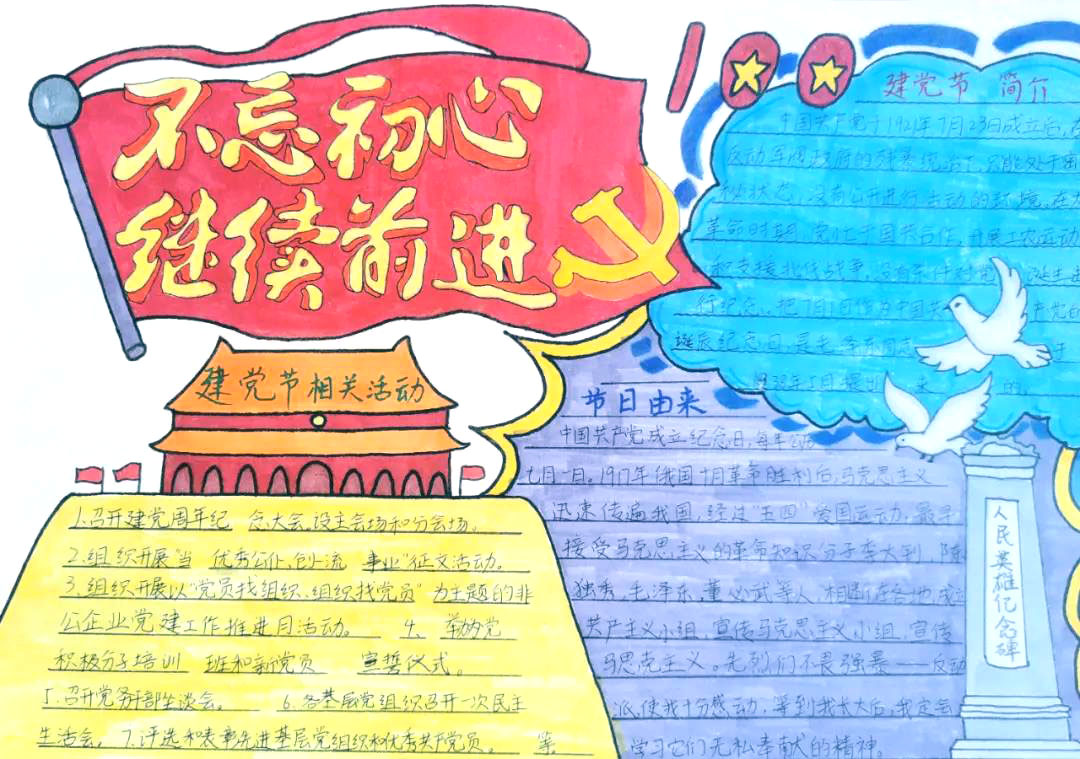 不忘初心
继续前进
100
建党节 简介
中国共产党于1921年7月23日成立后,在
反动军阀政府的残暴统治下,只能处于秘
密状态,没有公开进行活动的环境,在大
革命时期,党忙于国共合作,开展工农运动
和支援北伐战争,没有条件对
行纪念,把7月1日作为中国共 产党的
诞辰纪念日,是毛
1938年5月提出 来 的。
建党节相关活动
1.召开建党周年纪 念大会,设主会场和分会场。
2.组织开展"当 优秀公仆,创一流 事业"征文活动。
3.组织开展以"党员找组织、组织找党员" 为主题的非
公企业党建工作推进月活动。 4、举办党
积极分子培训 班和新党员 宣誓仪式。
5.召开党务干部生谈会。 6.各基层党组织召开一次民主
生活会。7.评选和表彰先进基层党组织和优秀共产党员。 等。
节日由来
中国共产党成立纪念日,每年公历
七月一日。1917年俄国十月革命胜利后,马克思主义
迅速传遍我国,经过"五四"爱国运动,最早
接受马克思主义的革命知识分子李大钊、陈
独秀,毛泽东,董必武等人,相断在各地,成立
共产主义小组,宣传马克思主义小组,宣传
马思克主义。先烈们不畏强暴——反动
派,使我十分感动,等到我长大后,我定会
学习它们无私奉献的精神。
人民英雄纪念碑